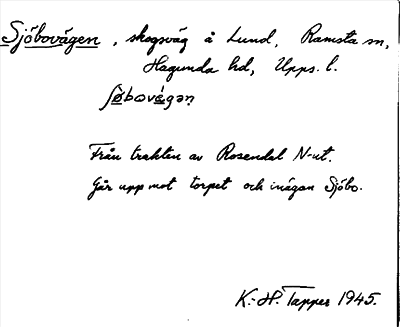 Sjöbovägen, skogsväg å Lund, Ramsta sn,
Hagunda hd, Upps. l.
ʃøbovégən
Från trakten av Rosendal N-ut.
Går upp mot torpet och inägan Sjöbo.
K.-H. Tapper 1945.